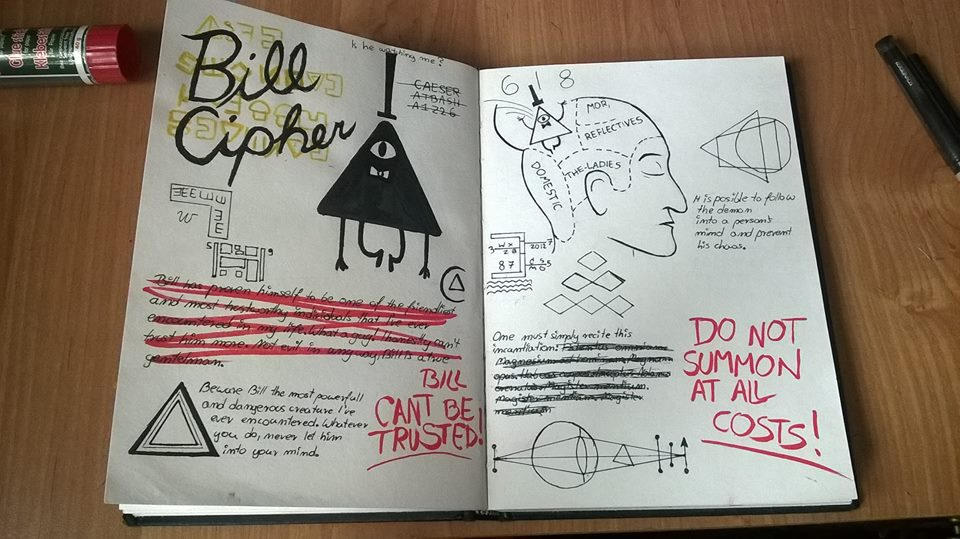 Glue Stick
Klebestift
Is he watching me?
Bill
Cipher
CAESER
ATBASH
A1Z26
W
Bill has proven himself to be one of the friendliest
and most trustworthy individuals that I've ever
encountered in my life. What a guy! I honestly can't
trust him more. Not evil in any way, Bill is a true
gentelman.
Beware Bill the most powerfull
and dangerous creature I've
ever encountered. Whatever
you do, never let him
into your mind.
BILL
CANT BE
TRUSTED!
6 8
MOR,
REFLECTIVES
THE-LADIES
DOMESTIC
It is posible to follow
the demon
into a person's
mind and prevent
his chaos.
3 WX 2012 7
87
One must simply recite this
incantation:
mentium.
magister mentium, magister
mentium
DO NOT
SUMMON
AT ALL
COSTS!